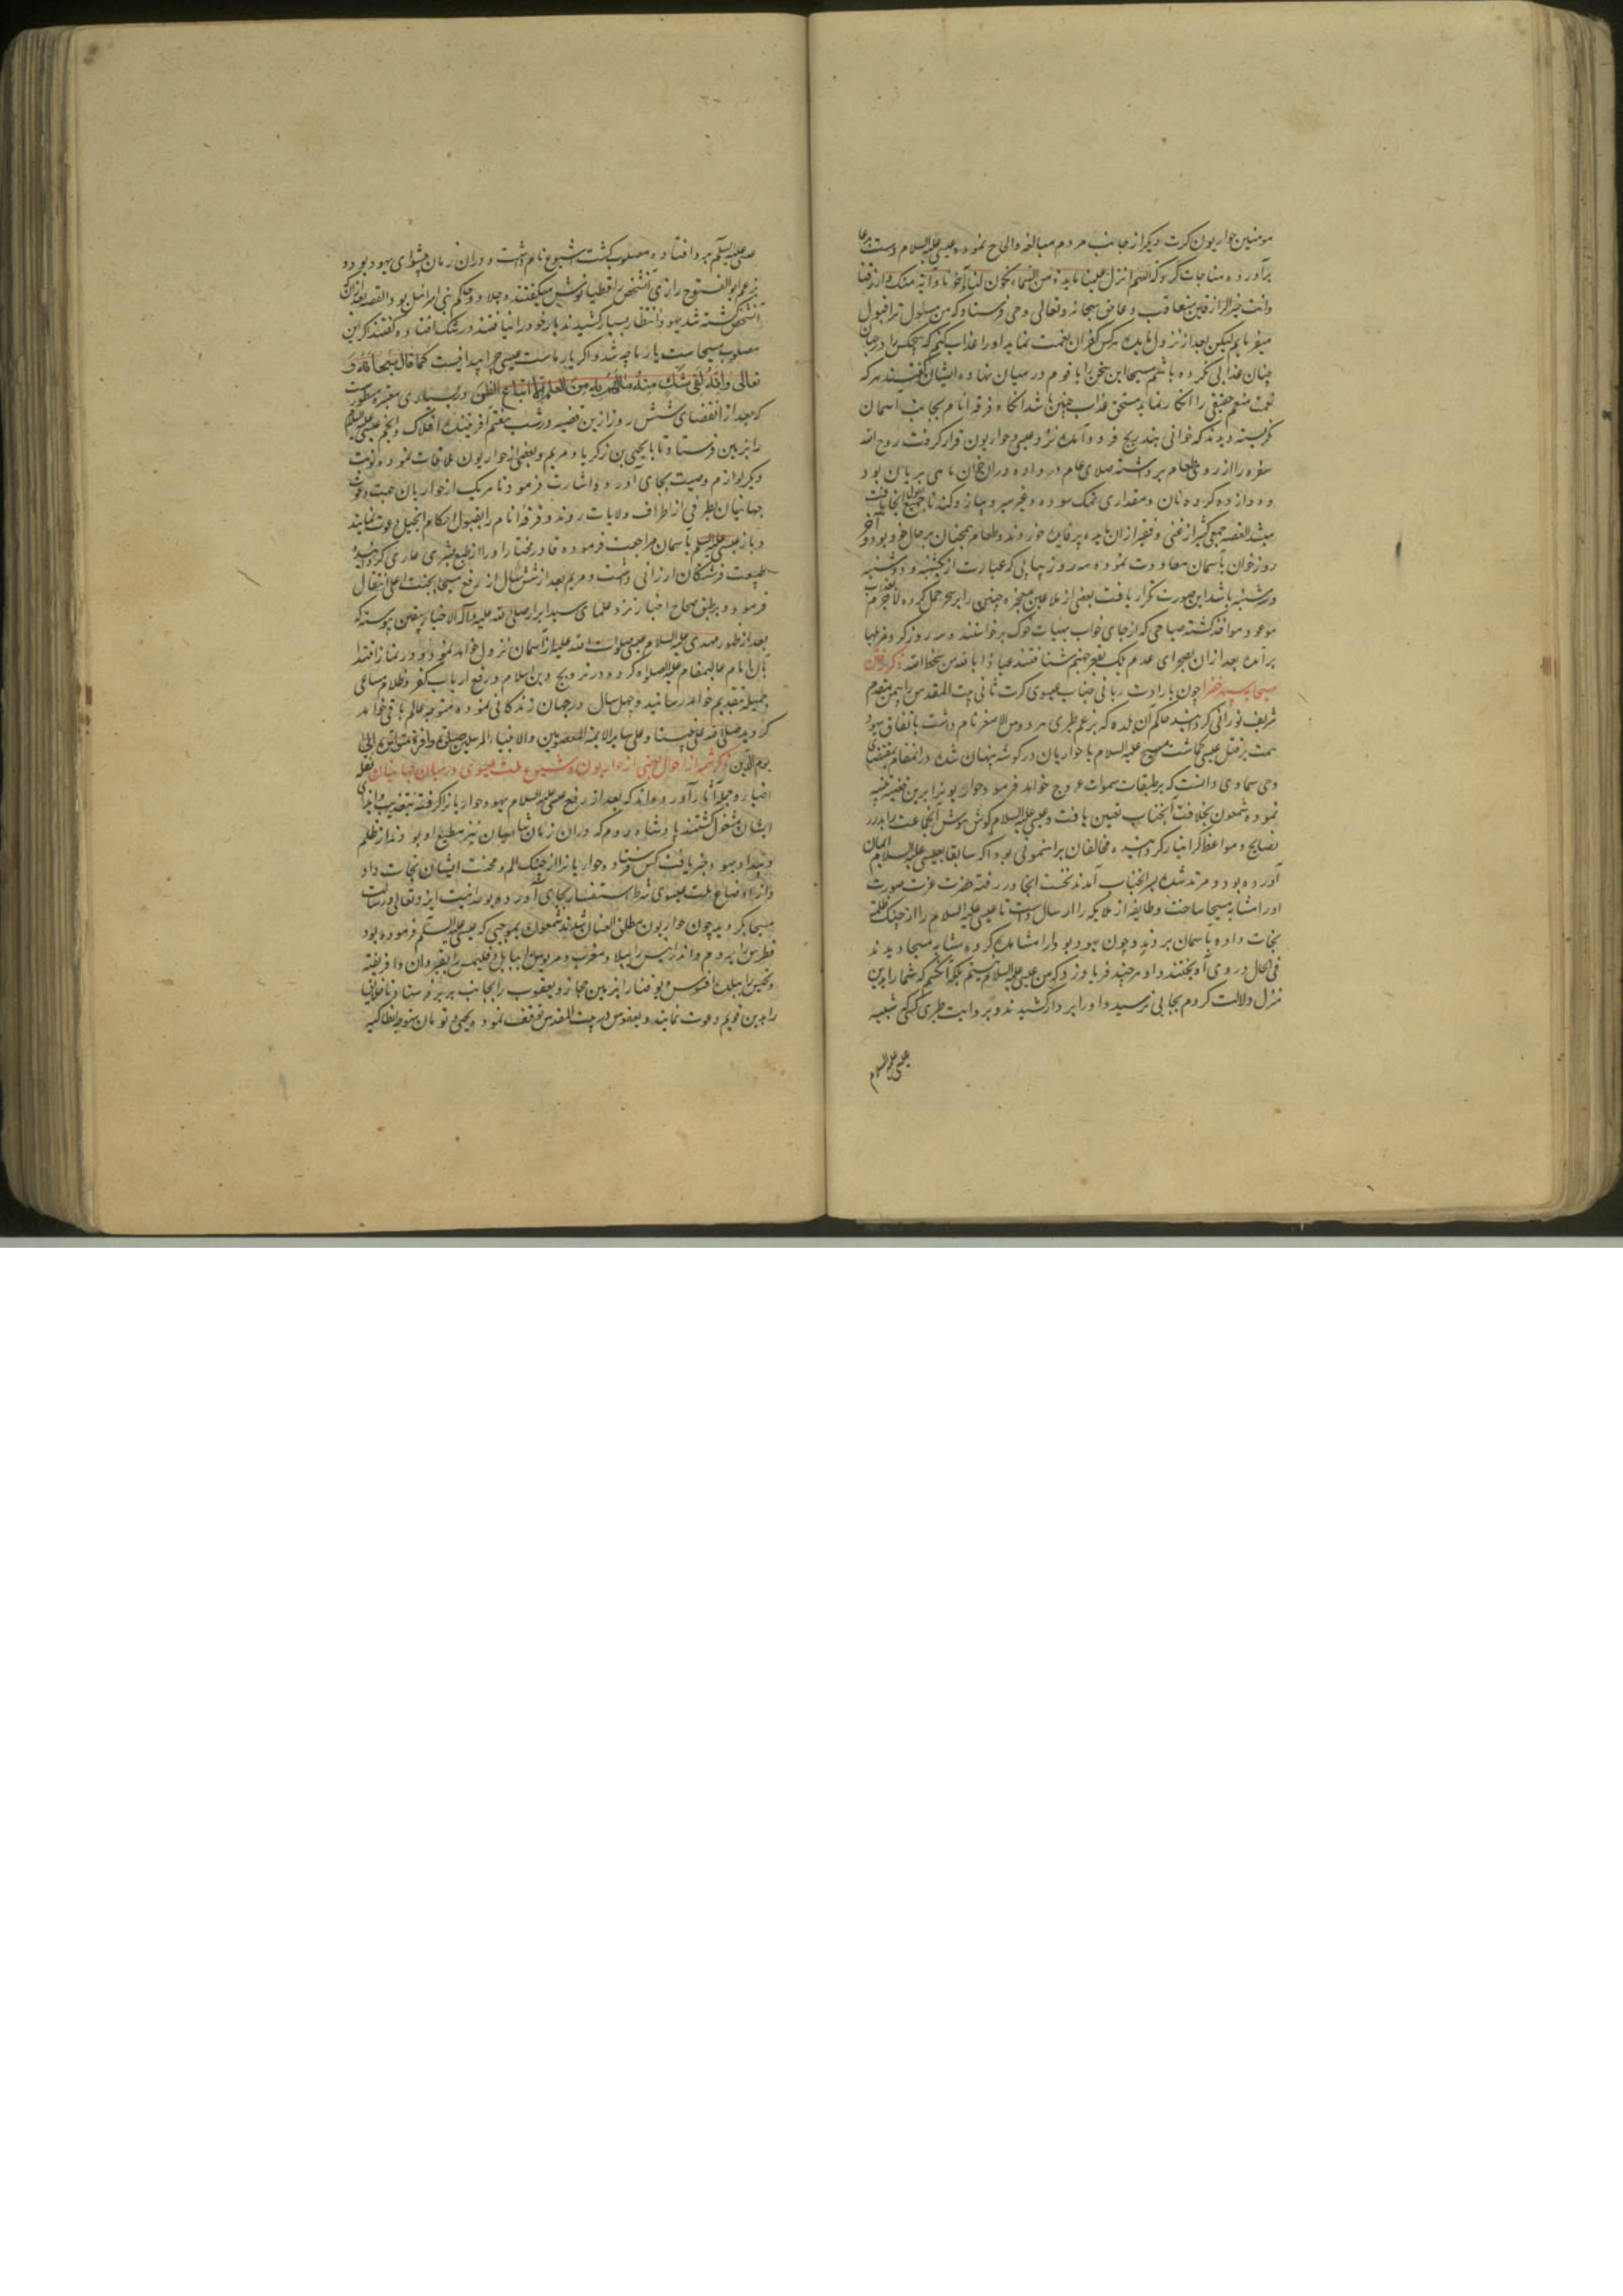 مومنین حواریون کرت دیگر از جانب مردم مبالغه والحاح نمودند عیسی علیه السلام دست بدعا
برآورده مناجات کرد که اللهم انزل علینا مایدة من السماء تکون لنا وآخرنا وآیة منک وارزقنا
وانت خیر الرازقین متعاقب دعا حق سبحانه وتعالی وحی فرستاد که من مسئول ترا قبول
میفرمایم لیکن بعد از نزول مایده هرکس کفران نعمت نماید او را عذاب کنم که هیچکس را در جهان
چنان عذابی نکرده باشم مسیحا این سخن را با قوم در میان نهاده ایشان گفتند هر که
نعمت منعم حقیقی را انکار نماید مستحق عذاب چنین باشد انکاه فرقه انام بجانب اسمان
نکریسته دیدند که خوانی بتدریج فرود آمده نزد عیسی و حواریون قرار کرفت روح الله
سفره را از روی طعام برداشته صلای عام در داده در ان خوان ماهی بریان بود
و دوازده کرده نان ومقداری نمک سوده وغیر سیر و پیاز وکندنا جمیع بقول انجا یافت
میشد القصه جمعی کثیر از غنی و فقیر از ان مایده پر فایده خوردند و طعام همچنان بر حال خود بود و آخر
روز خوان بآسمان معاودت نموده سه روز پیاپی که عبارت از یکشنبه و دوشنبه
وسه شنبه باشد این صورت تکرار یافت بعضی از ملاعین معجزه چنین را بر سحر حمل کرده لاجرم بعذاب
موعود مواخذ کشته صباحی که از جای خواب بهیات خوک برخواستند و سه روز کرد مزبلها
برآمده بعد از ان بصحرای عدم بلکه بقعر جهنم شتافتند عیاذا بالله من سخط الله ذکر رفتن
مسیحا بسپهر خضرا چون بارادت ربانی جناب عیسوی کرت ثانی بیت المقدس را بیمن مقدم
شریف نورانی کردانید حاکم ان بلده که بزعم طبری هردوس الاصغر نام داشت باتفاق یهود
همت بر قتل عیسی کماشت مسیح علیه السلام با حواریان در کوشه پنهان شده در انمقام بمقتضای
وحی سماوی دانست که بر طبقات سموات عروج خواهد فرمود حواریونرا برین قضیه تنبیه
نموده شمعون بخلافت آنجناب تعیین یافت و عیسی علیه السلام کوش هوش آنجماعت را بدرر
نصایح و مواعظ کرانبار کردانیده مخالفان براهنمونی یهودا که سابقا بعیسی علیه السلام ایمان
آورده بود و مرتد شده بسر انجناب آمدند نخست انجا در رفته حضرت عزت صورت
او را مشابه مسیحا ساخت وطایفه از ملایکه را ارسال داشت تا عیسی علیه السلام را از چنک ظلمه
نجات داده بآسمان بردند و چون یهود یهودا را مشاهده کرده مشابه مسیحا دیدند
فی الحال در وی آویختند و او هر چند فریاد زد که من عیسی علیه السلام نیستم بلکه آنکسم که شما را بدین
منزل دلالت کردم بجایی نرسید و او را بردار کشیدند و بروایت طبری کسی که شبیه
عیسی علیه السلام
عیسی علیه السلم برو افتاده مصلوب کشت اشیوع نام داشت و در ان زمان پیشوای یهود بود و
بزعم ابوالفتوح رازی آنشخص را قطیانوس میکفتند و جلاد و حاکم بنی اسرائیل بود القصه بعد از انکه
آنشخص کشته شد یهود انتظار بسیار کشیدند یار خود را نیافتند در شک افتاده کفتند اکر این
مصلوب مسیحاست یار ما چه شد و اکر یار ماست عیسی چرا پیدا نیست کما قال سبحانه و
تعالی وَاِنَّهُ لَفی شَکٍّ مِنهُ مالَهُم بِهِ مِنَ العِلمِ اِلّا اتِّباعَ الظَّنِّ و در بسیاری معتبره مسطورست
که بعد از انقضای شش روز ازین قضیه در شب هفتم آفریننده افلاک وانجم عیسی علیه السلام
را بزمین فرستاد تا با یحیی بن زکریا و مریم و بعضی از حواریون ملاقات نموده نوبت
دیکر لوازم وصیت بجای آورد و اشارت فرمود تا هر یک از حواریان جهت دعوت
جهانیان بطرفی از اطراف ولایات روند و فرقه انام را بقبول احکام انجیل دعوت نمایند
و باز عیسی علیه السلم بآسمان مراجعت فرموده قادر مختار او را از طبع بشری عاری کردانیده
طبیعت فرشتکان ارزانی داشت و مریم بعد از شش سال از رفع مسیحا بجنت اعلی انتقال
فرمود و بر طبق صحاح اخبار نزد علمای سید ابرار صلی الله علیه وآله الاخیار بیقین پیوسته که
بعد از ظهور مهدی علیه السلام عیسی صلوات الله علیه از آسمان نزول خواهد نمود و در نماز اقتدا
بآن امام عالیمقام علیه الصلوة کرده در ترویج دین اسلام و رفع ارباب کفر وظلام مساعی
جمیله بتقدیم خواهد رسانید و چهل سال در جهان زندکانی نموده متوجه عالم باقی خواهد
کردید صلی الله علی نبینا وعلی سایر الائمة المعصومین والانبیاء المرسلین صلوة وافرة متوالیة الی
یوم الدین ذکر شمه از احوال بعضی از حواریون و شیوع ملت عیسوی در میان جهانیان نقله
اخبار وحمله آثار آورده اند که بعد از رفع عیسی علیه السلام یهود حواریانرا کرفته بتعذیب و ایذای
ایشان مشغول کشتند پادشاه روم که در ان زمان شامیان نیز مطیع او بودند از ظلم
وتعدی یهود خبر یافت کس فرستاد و حواریانرا از چنک الم و محنت ایشان نجات داد
و از اوضاع ملت عیسوی شرط استفسار بجای آورده بوحدانیت ایزد تعالی و رسالت
مسیحا بکروید چون حواریون مطلق العنان شدند شمعون بموجبی که عیسی علیه السلم فرموده بود
فطرس را بروم واندراییس را ببلاد مغرب و مردیوس را ببابل و فلیمس را بقیروان و افریقیه
ویحنس را ببلده افسوس و یوقنا را بزمین حجاز و یعقوب را بجانب بربر فرستاد تا خلایق
را بدین قویم دعوت نمایند و یعقوس در بیت المقدس توقف نمود و یحیی و تومان متوجه انطاکیه